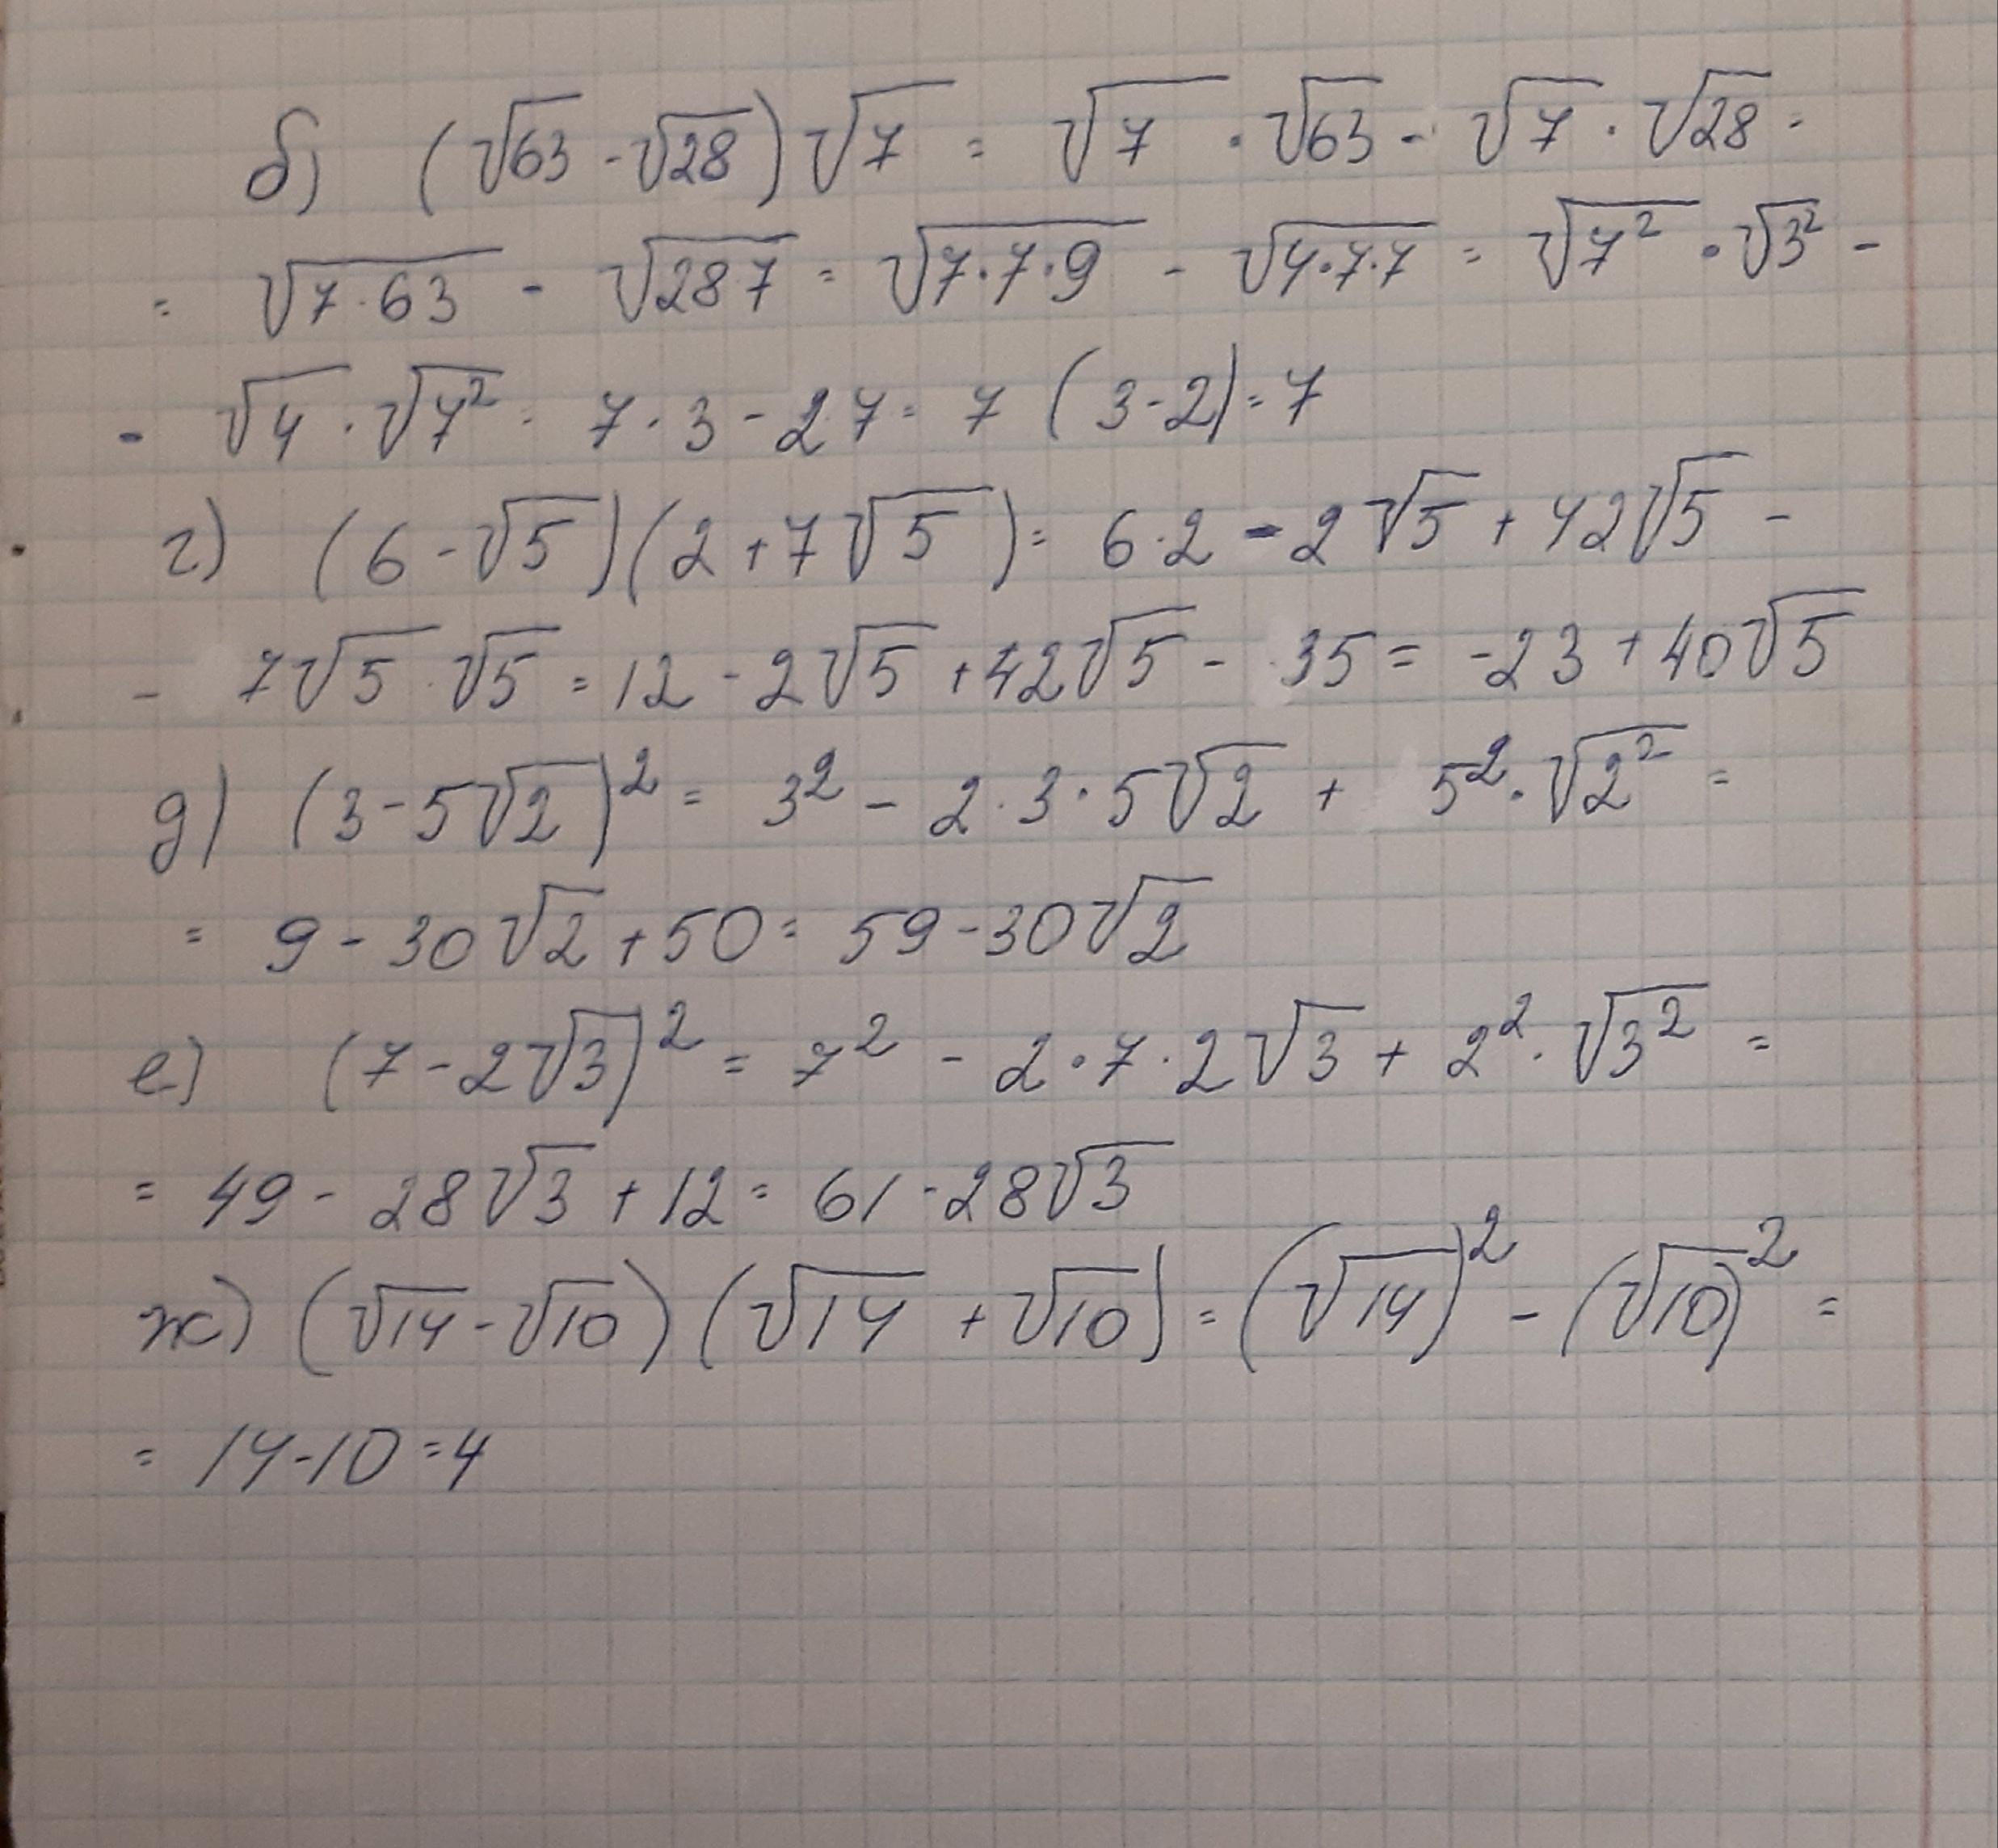 б) (√63 - √28) √7 = √7 · √63 - √7 · √28 =
= √7·63 - √28 7 = √7·7·9 - √4·7·7 = √7² · √3² -
- √4 · √7² = 7 · 3 - 2 7 = 7 (3-2) = 7
г) (6 - √5)(2 + 7√5) = 6·2 - 2√5 + 42√5 -
- 7√5 · √5 = 12 - 2√5 + 42√5 - 35 = -23 + 40√5
д) (3 - 5√2)² = 3² - 2·3·5√2 + 5² · √2² =
= 9 - 30√2 + 50 = 59 - 30√2
е) (7 - 2√3)² = 7² - 2·7·2√3 + 2² · √3² =
= 49 - 28√3 + 12 = 61 - 28√3
ж) (√14 - √10)(√14 + √10) = (√14)² - (√10)² =
= 14 - 10 = 4